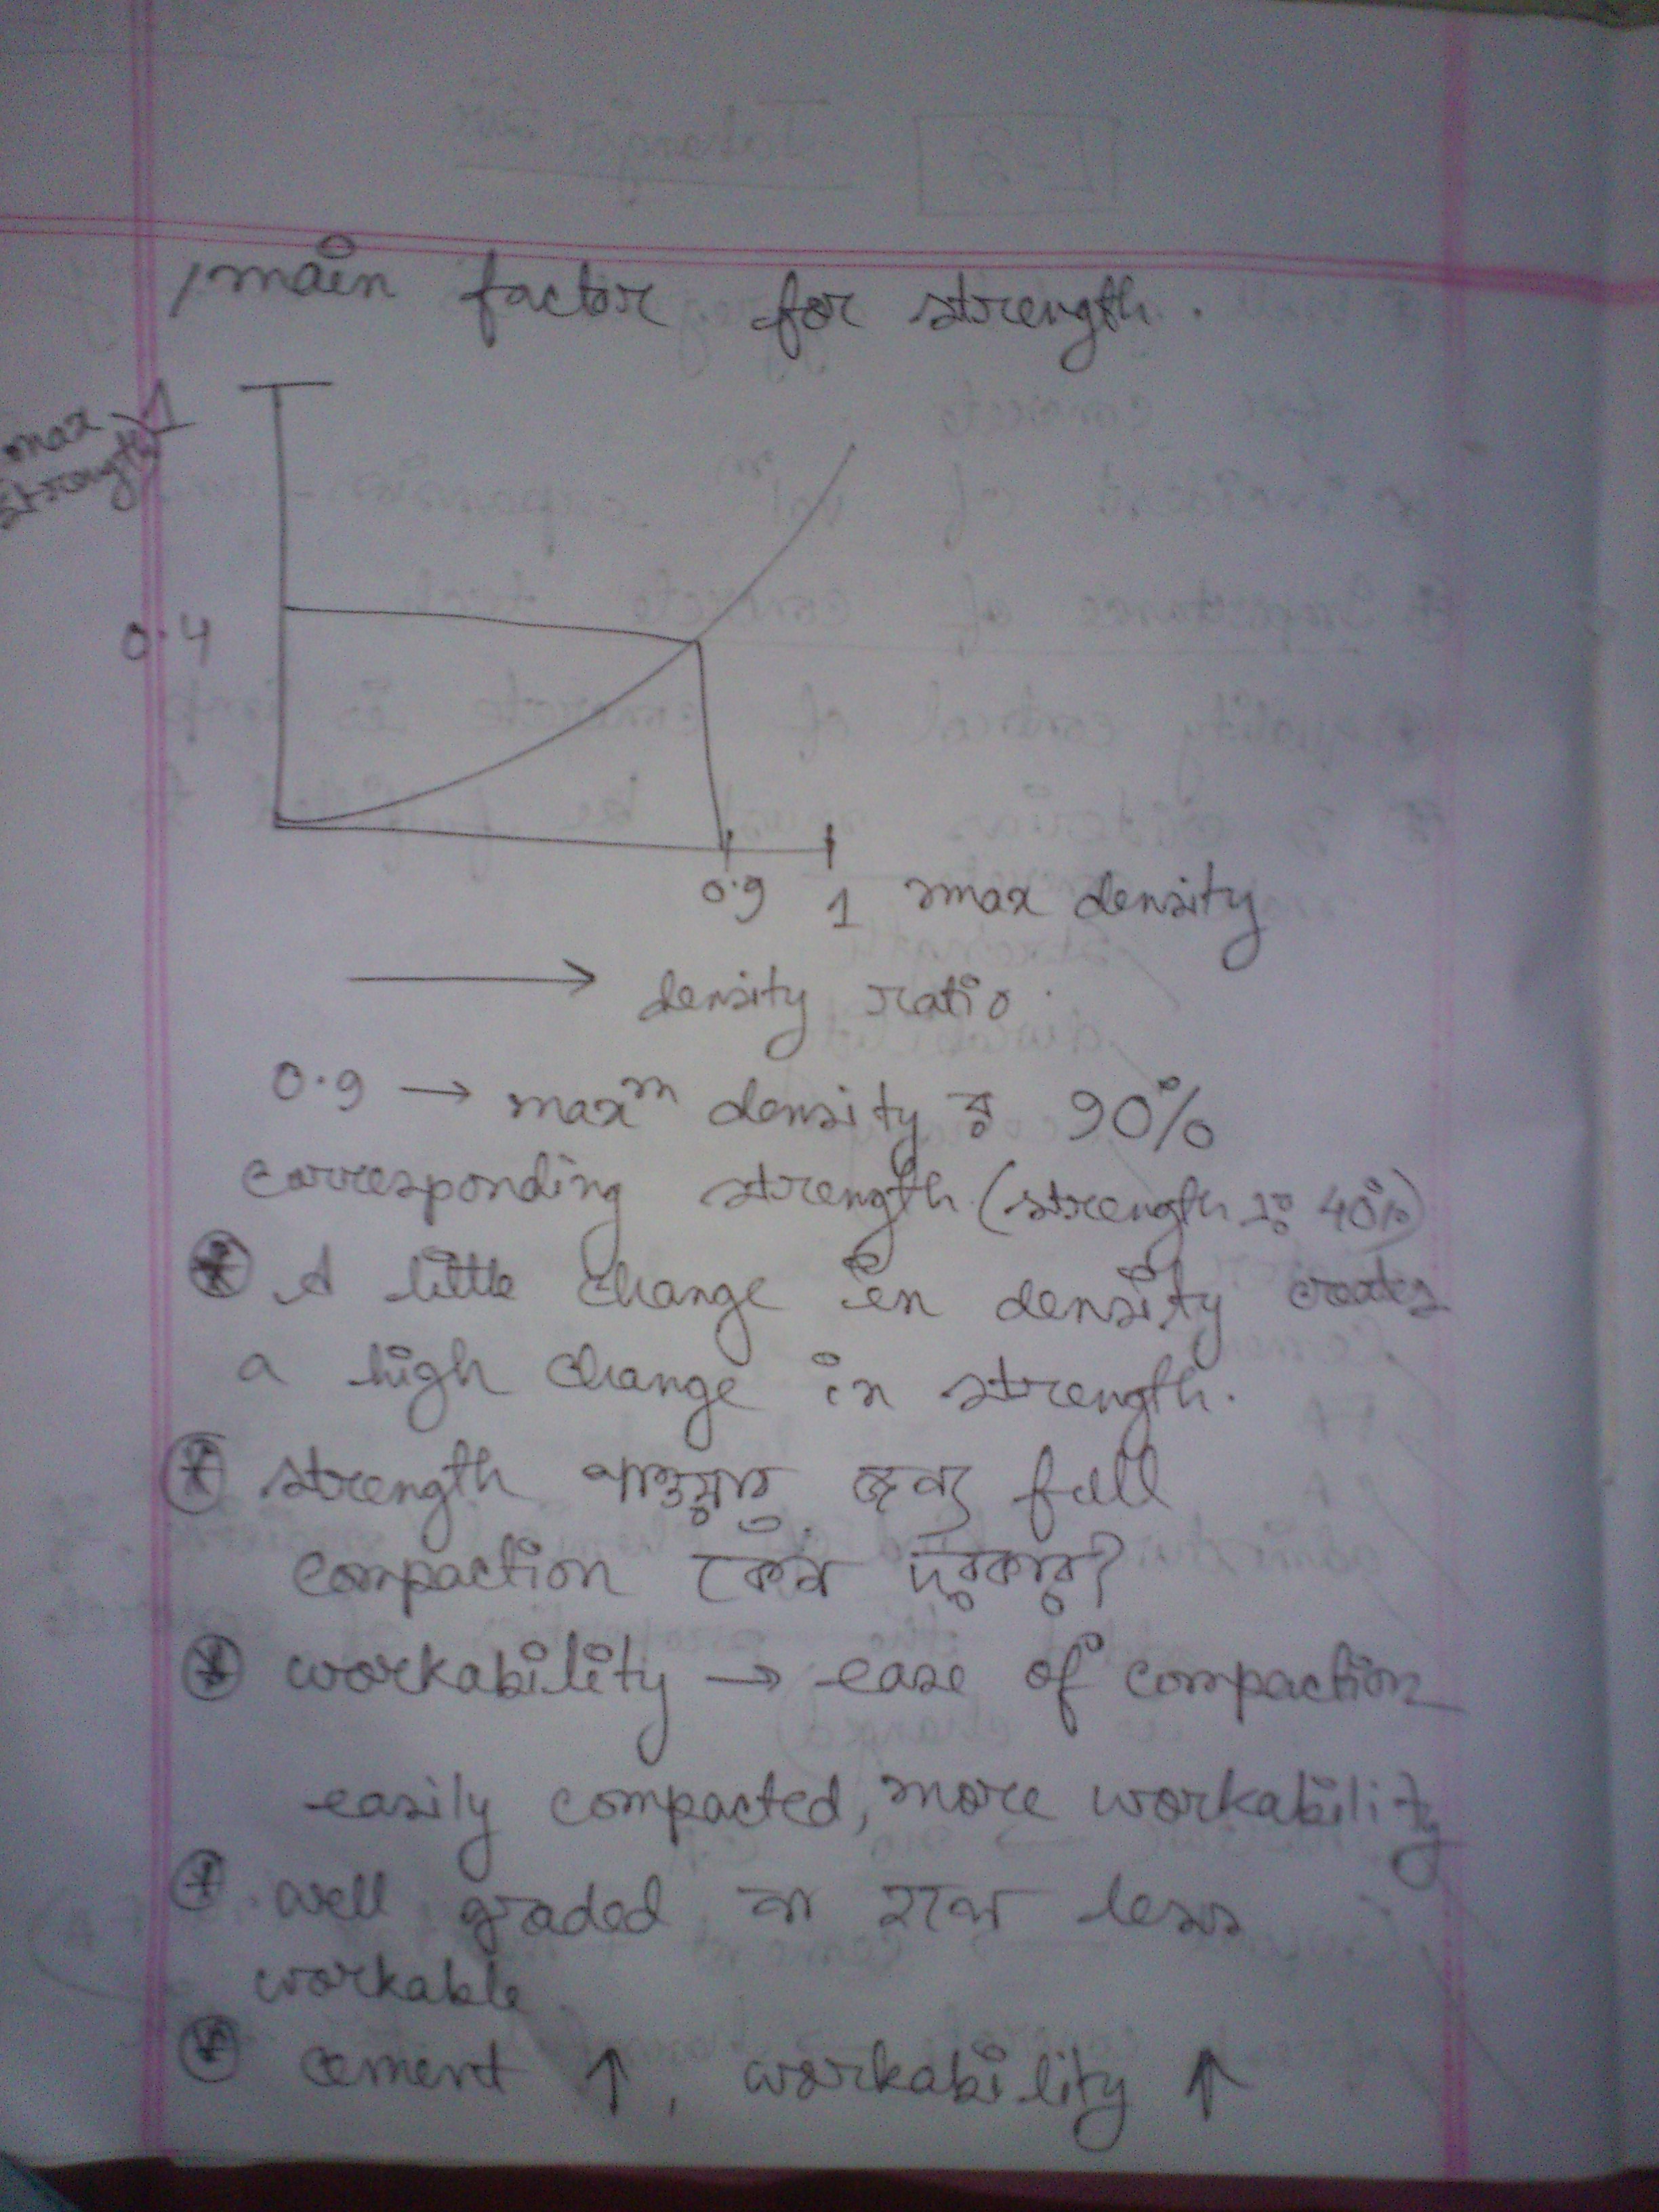 main factor for strength.
max 1
strength
0.4
0.9 1 max density
→ density ratio
0.9 → maxᵐ density র 90%
corresponding strength (strength 40%)
A little change in density creates
a high change in strength.
strength পাওয়ার জন্য full
compaction কেন দরকার?
workability → ease of compaction
easily compacted, more workability
well graded না হলে less
workable
cement ↑, workability ↑